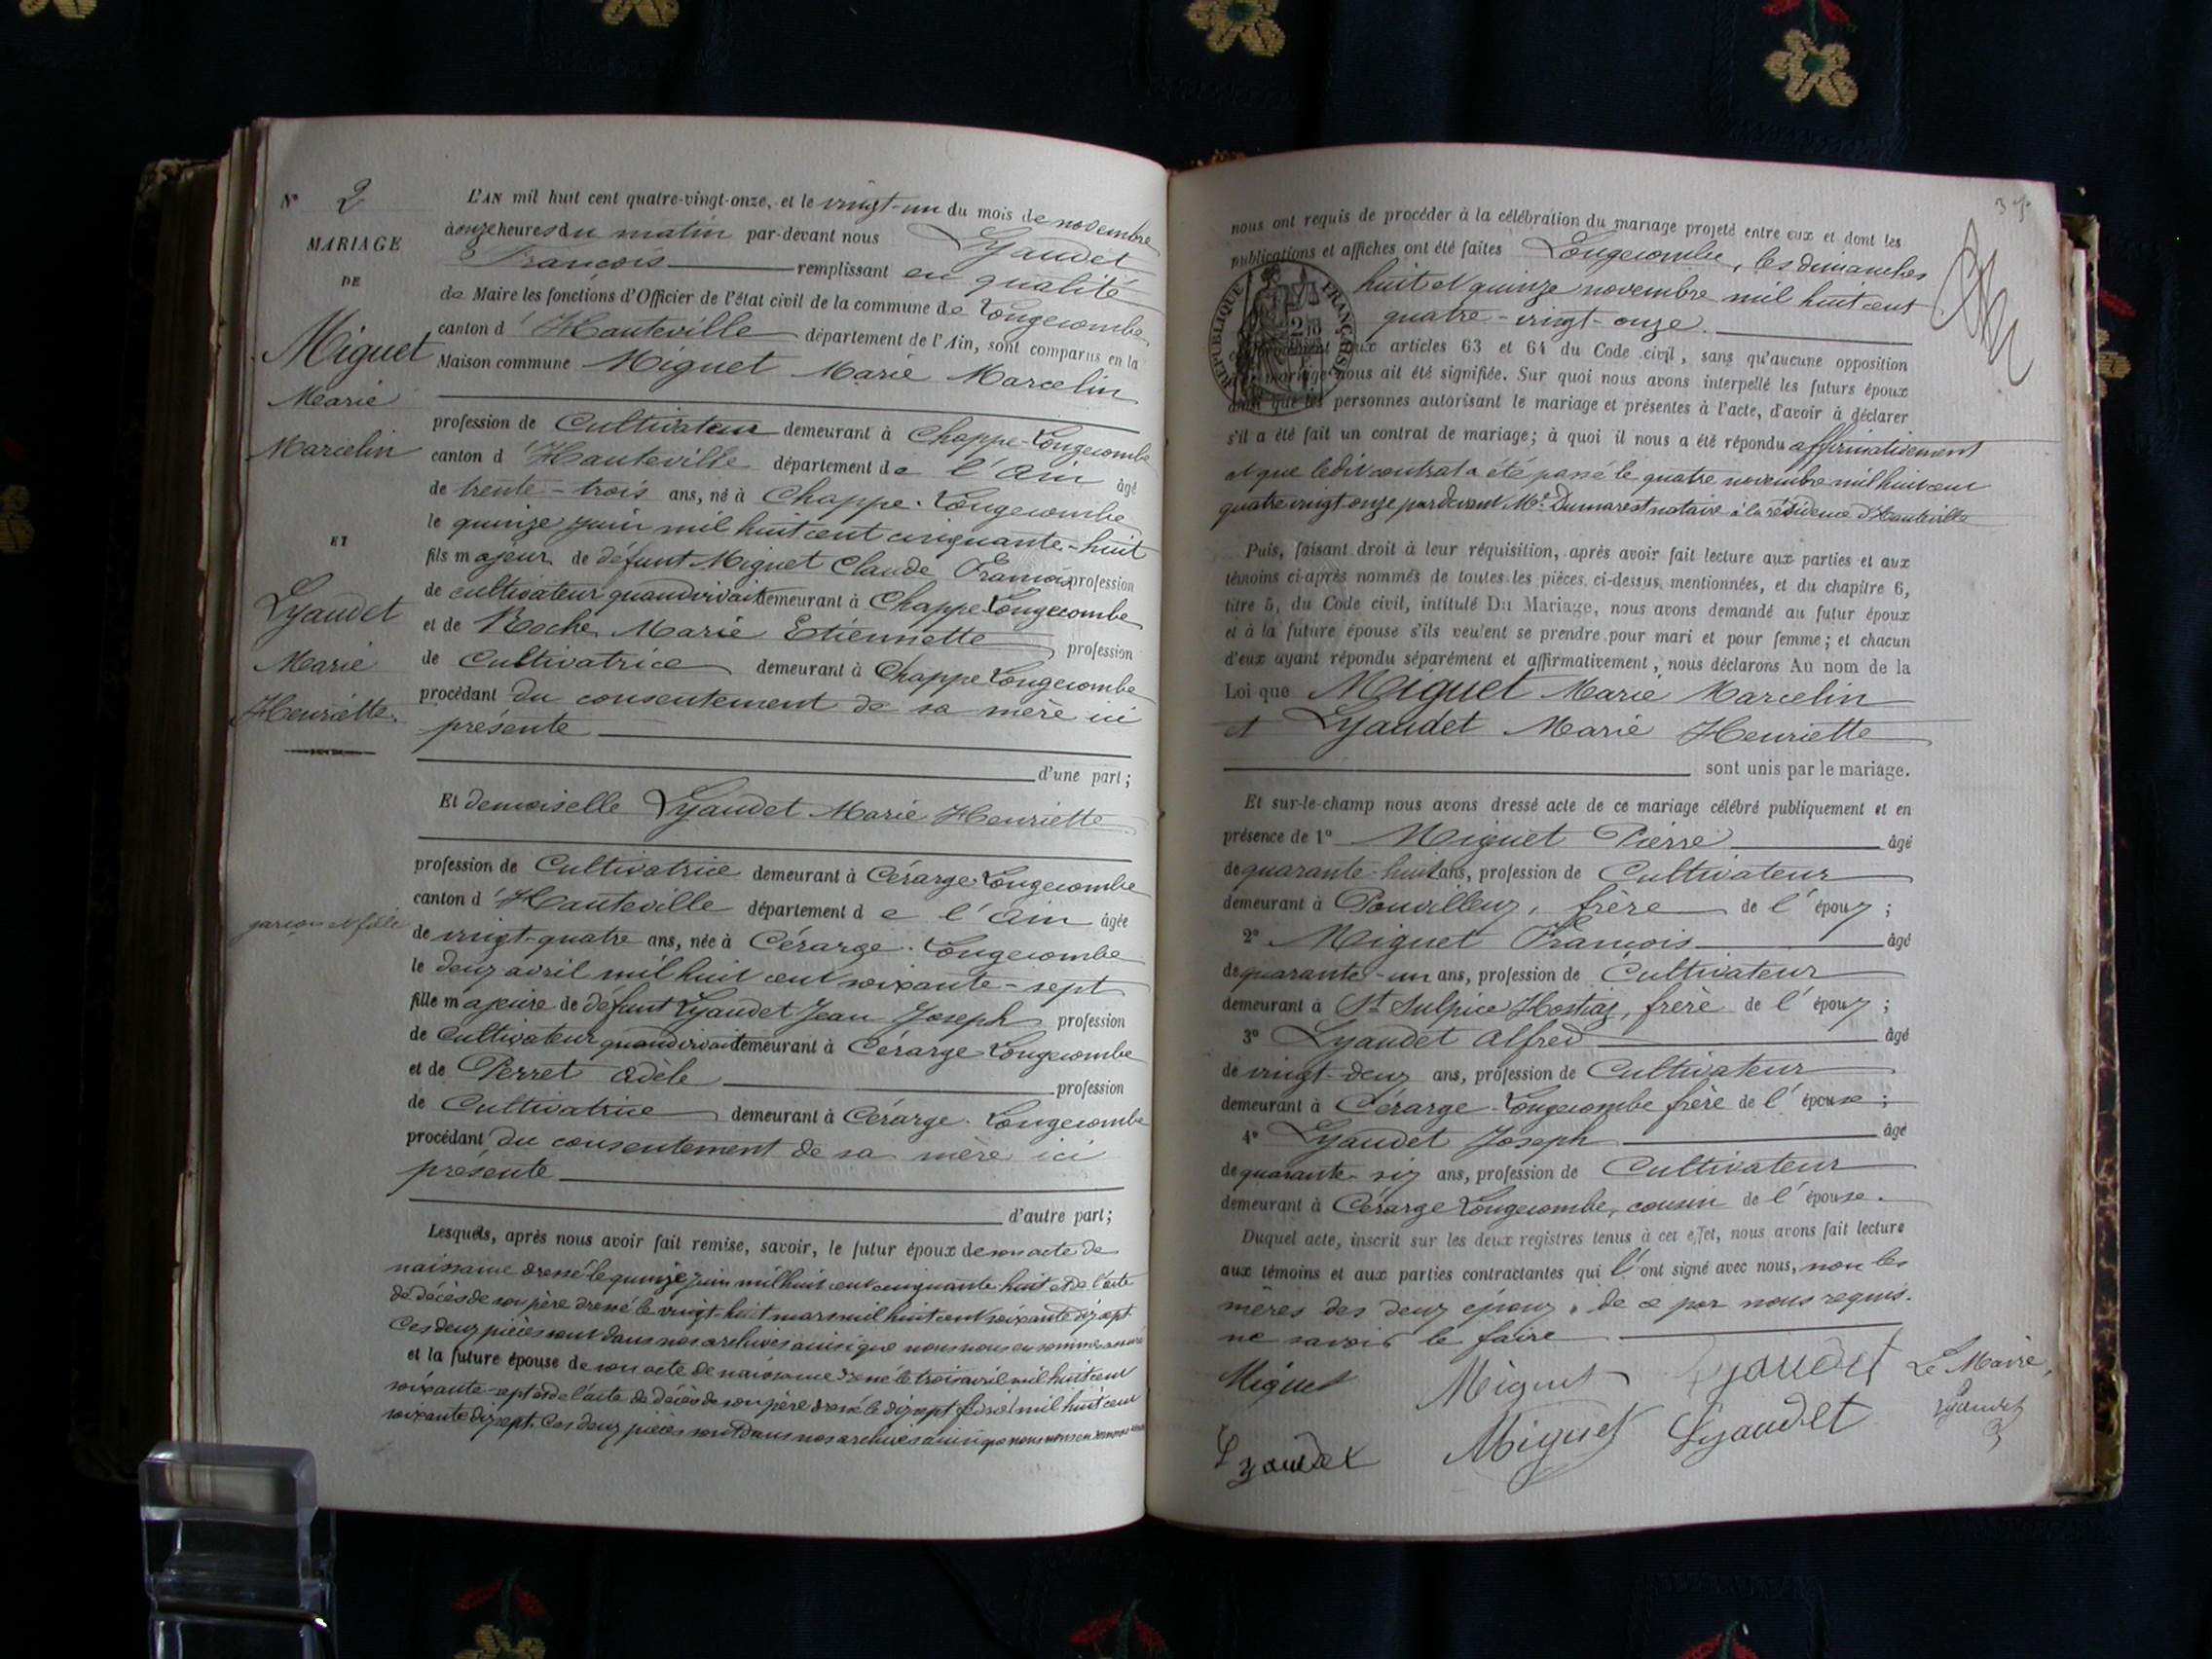 N° 2
MARIAGE
DE
Miguet
Marie
Marcelin
ET
Lyaudet
Marie
Henriette
garçon et fille
L'AN mil huit cent quatre-vingt-onze, et le vingt-un du mois de novembre
à onze heures du matin par-devant nous Lyaudet
François remplissant en qualité
de Maire les fonctions d'Officier de l'état civil de la commune de Longecombe,
canton d'Hauteville département de l'Ain, sont comparus en la
Maison commune Miguet Marie Marcelin
profession de Cultivateur demeurant à Chappe-Longecombe
canton d'Hauteville département de l'Ain âgé
de trente-trois ans, né à Chappe-Longecombe
le quinze juin mil huit cent cinquante-huit
fils majeur de défunt Miguet Claude François profession
de cultivateur quand vivait demeurant à Chappe Longecombe
et de Roche Marie Etiennette profession
de Cultivatrice demeurant à Chappe Longecombe
procédant du consentement de sa mère ici
présente
d'une part;
Et demoiselle Lyaudet Marie Henriette
profession de Cultivatrice demeurant à Cérarge-Longecombe
canton d'Hauteville département de l'Ain âgée
de vingt-quatre ans, née à Cérarge-Longecombe
le deux avril mil huit cent soixante-sept
fille majeure de défunt Lyaudet Jean Joseph profession
de Cultivateur quand vivait demeurant à Cérarge-Longecombe
et de Perret Adèle profession
de Cultivatrice demeurant à Cérarge-Longecombe
procédant du consentement de sa mère ici
présente
d'autre part;
Lesquels, après nous avoir fait remise, savoir, le futur époux de son acte de
naissance dressé le quinze juin mil huit cent cinquante-huit et de l'acte
de décès de son père dressé le vingt-huit mars mil huit cent soixante dix sept
Ces deux pièces sont dans nos archives ainsi que nous nous en sommes assuré
et la future épouse de son acte de naissance dressé le trois avril mil huit cent
soixante-sept et de l'acte de décès de son père dressé le dix sept mil huit cent
soixante dix sept. Ces deux pièces sont dans nos archives ainsi que nous nous en sommes
nous ont requis de procéder à la célébration du mariage projeté entre eux et dont les
publications et affiches ont été faites Longecombe, les dimanches
huit et quinze novembre mil huit cent
quatre-vingt-onze.
RÉPUBLIQUE FRANÇAISE
conformément aux articles 63 et 64 du Code civil, sans qu'aucune opposition
au mariage nous ait été signifiée. Sur quoi nous avons interpellé les futurs époux
ainsi que les personnes autorisant le mariage et présentes à l'acte, d'avoir à déclarer
s'il a été fait un contrat de mariage; à quoi il nous a été répondu affirmativement
et que ledit contrat a été passé le quatre novembre mil huit cent
quatre vingt-onze par devant Me Dumarest notaire à la résidence d'Hauteville
Puis, faisant droit à leur réquisition, après avoir fait lecture aux parties et aux
témoins ci-après nommés de toutes les pièces ci-dessus mentionnées, et du chapitre 6,
titre 5, du Code civil, intitulé Du Mariage, nous avons demandé au futur époux
et à la future épouse s'ils veulent se prendre pour mari et pour femme; et chacun
d'eux ayant répondu séparément et affirmativement, nous déclarons Au nom de la
Loi que Miguet Marie Marcelin
et Lyaudet Marie Henriette
sont unis par le mariage.
Et sur-le-champ nous avons dressé acte de ce mariage célébré publiquement et en
présence de 1° Miguet Pierre âgé
de quarante-huit ans, profession de Cultivateur
demeurant à Pouvilleux, frère de l'époux;
2° Miguet François âgé
de quarante-un ans, profession de Cultivateur
demeurant à St Sulpice Hostiaz, frère de l'époux;
3° Lyaudet Alfred âgé
de vingt-deux ans, profession de Cultivateur
demeurant à Cérarge-Longecombe frère de l'épouse;
4° Lyaudet Joseph âgé
de quarante-six ans, profession de Cultivateur
demeurant à Cérarge Longecombe, cousin de l'épouse.
Duquel acte, inscrit sur les deux registres tenus à cet effet, nous avons fait lecture
aux témoins et aux parties contractantes qui l'ont signé avec nous, non les
mères des deux époux, de ce par nous requis.
ne savoir le faire
Miguet Miguet Lyaudet Le Maire,
Lyaudet Miguet Lyaudet Lyaudet